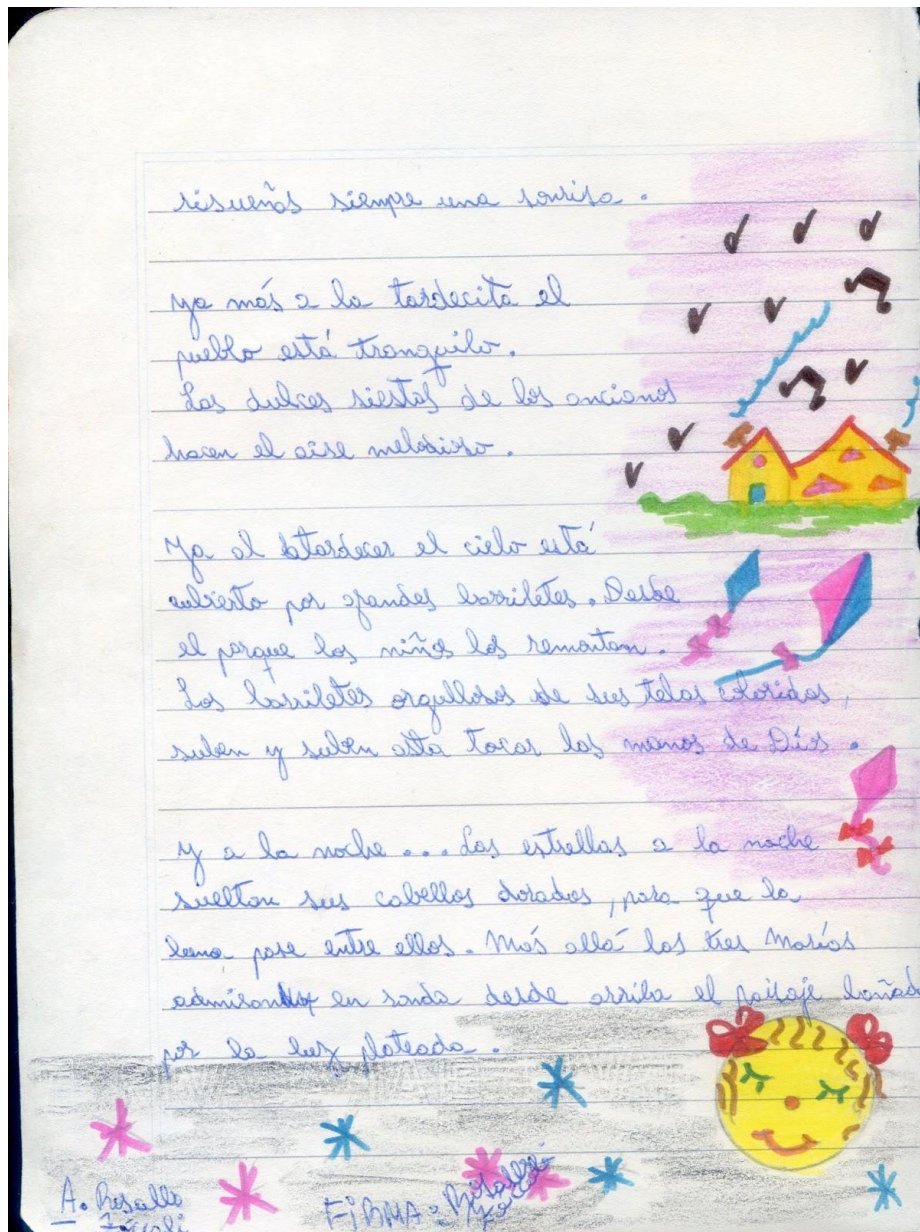 risueños siempre una sonrisa.
ya más a la tardecita el
pueblo está tranquilo.
Las dulces siestas de los ancianos
hacen el aire melodioso.
Ya al atardecer el cielo está
cubierto por grandes barriletes. Desde
el parque los niños los remontan.
Los barriletes orgullosos de sus telas coloridas,
suben y suben asta tocar las manos de Diós.
y a la noche... Las estrellas a la noche
sueltan sus cabellos dorados, para que la
luna pase entre ellos. Más allá las tres Marías
en ronda desde arriba el paisaje bañado
por la luz plateada.
A. Rosallo
FiRMA: